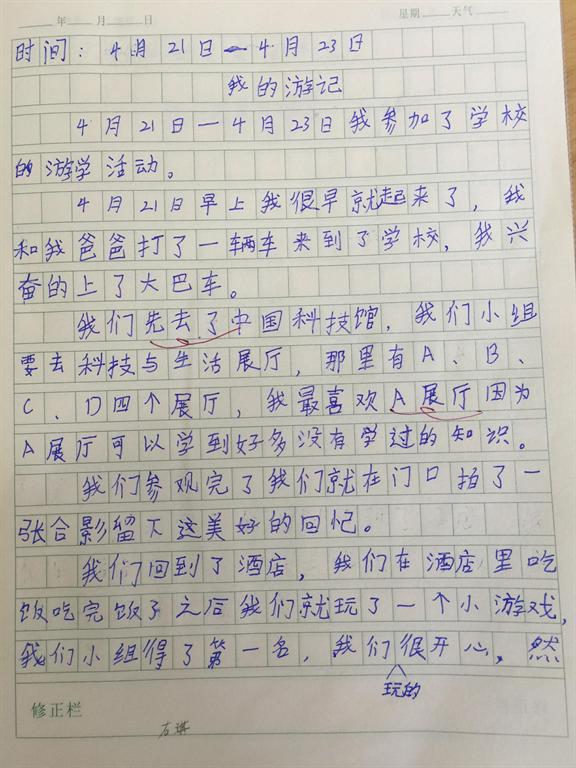 年 月 日 星期 天气
时间：4月21日—4月23日
我的游记
4月21日—4月23日我参加了学校
的游学活动。
4月21日早上我很早就起来了，我
和我爸爸打了一辆车来到了学校，我兴
奋的上了大巴车。
我们先去了中国科技馆，我们小组
要去科技与生活展厅，那里有A、B、
C、D四个展厅，我最喜欢A展厅因为
A展厅可以学到好多没有学过的知识。
我们参观完了我们就在门口拍了一
张合影留下这美好的回忆。
我们回到了酒店，我们在酒店里吃
饭吃完饭了之后我们就玩了一个小游戏，
我们小组得了第一名，我们很开心，然
玩的
修正栏